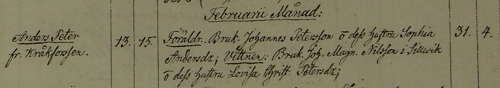 Februarii Månad:
Anders Peter 13. 15. Föräldr. Bruk. Johannes Petersson o dess Hustru Sophia 31. 4.
fr. Kråkfossen. Andersdr; Vittnen: Bruk. Joh. Magn. Nilsson i
o dess Hustru Lovisa Christ. Petersdr;